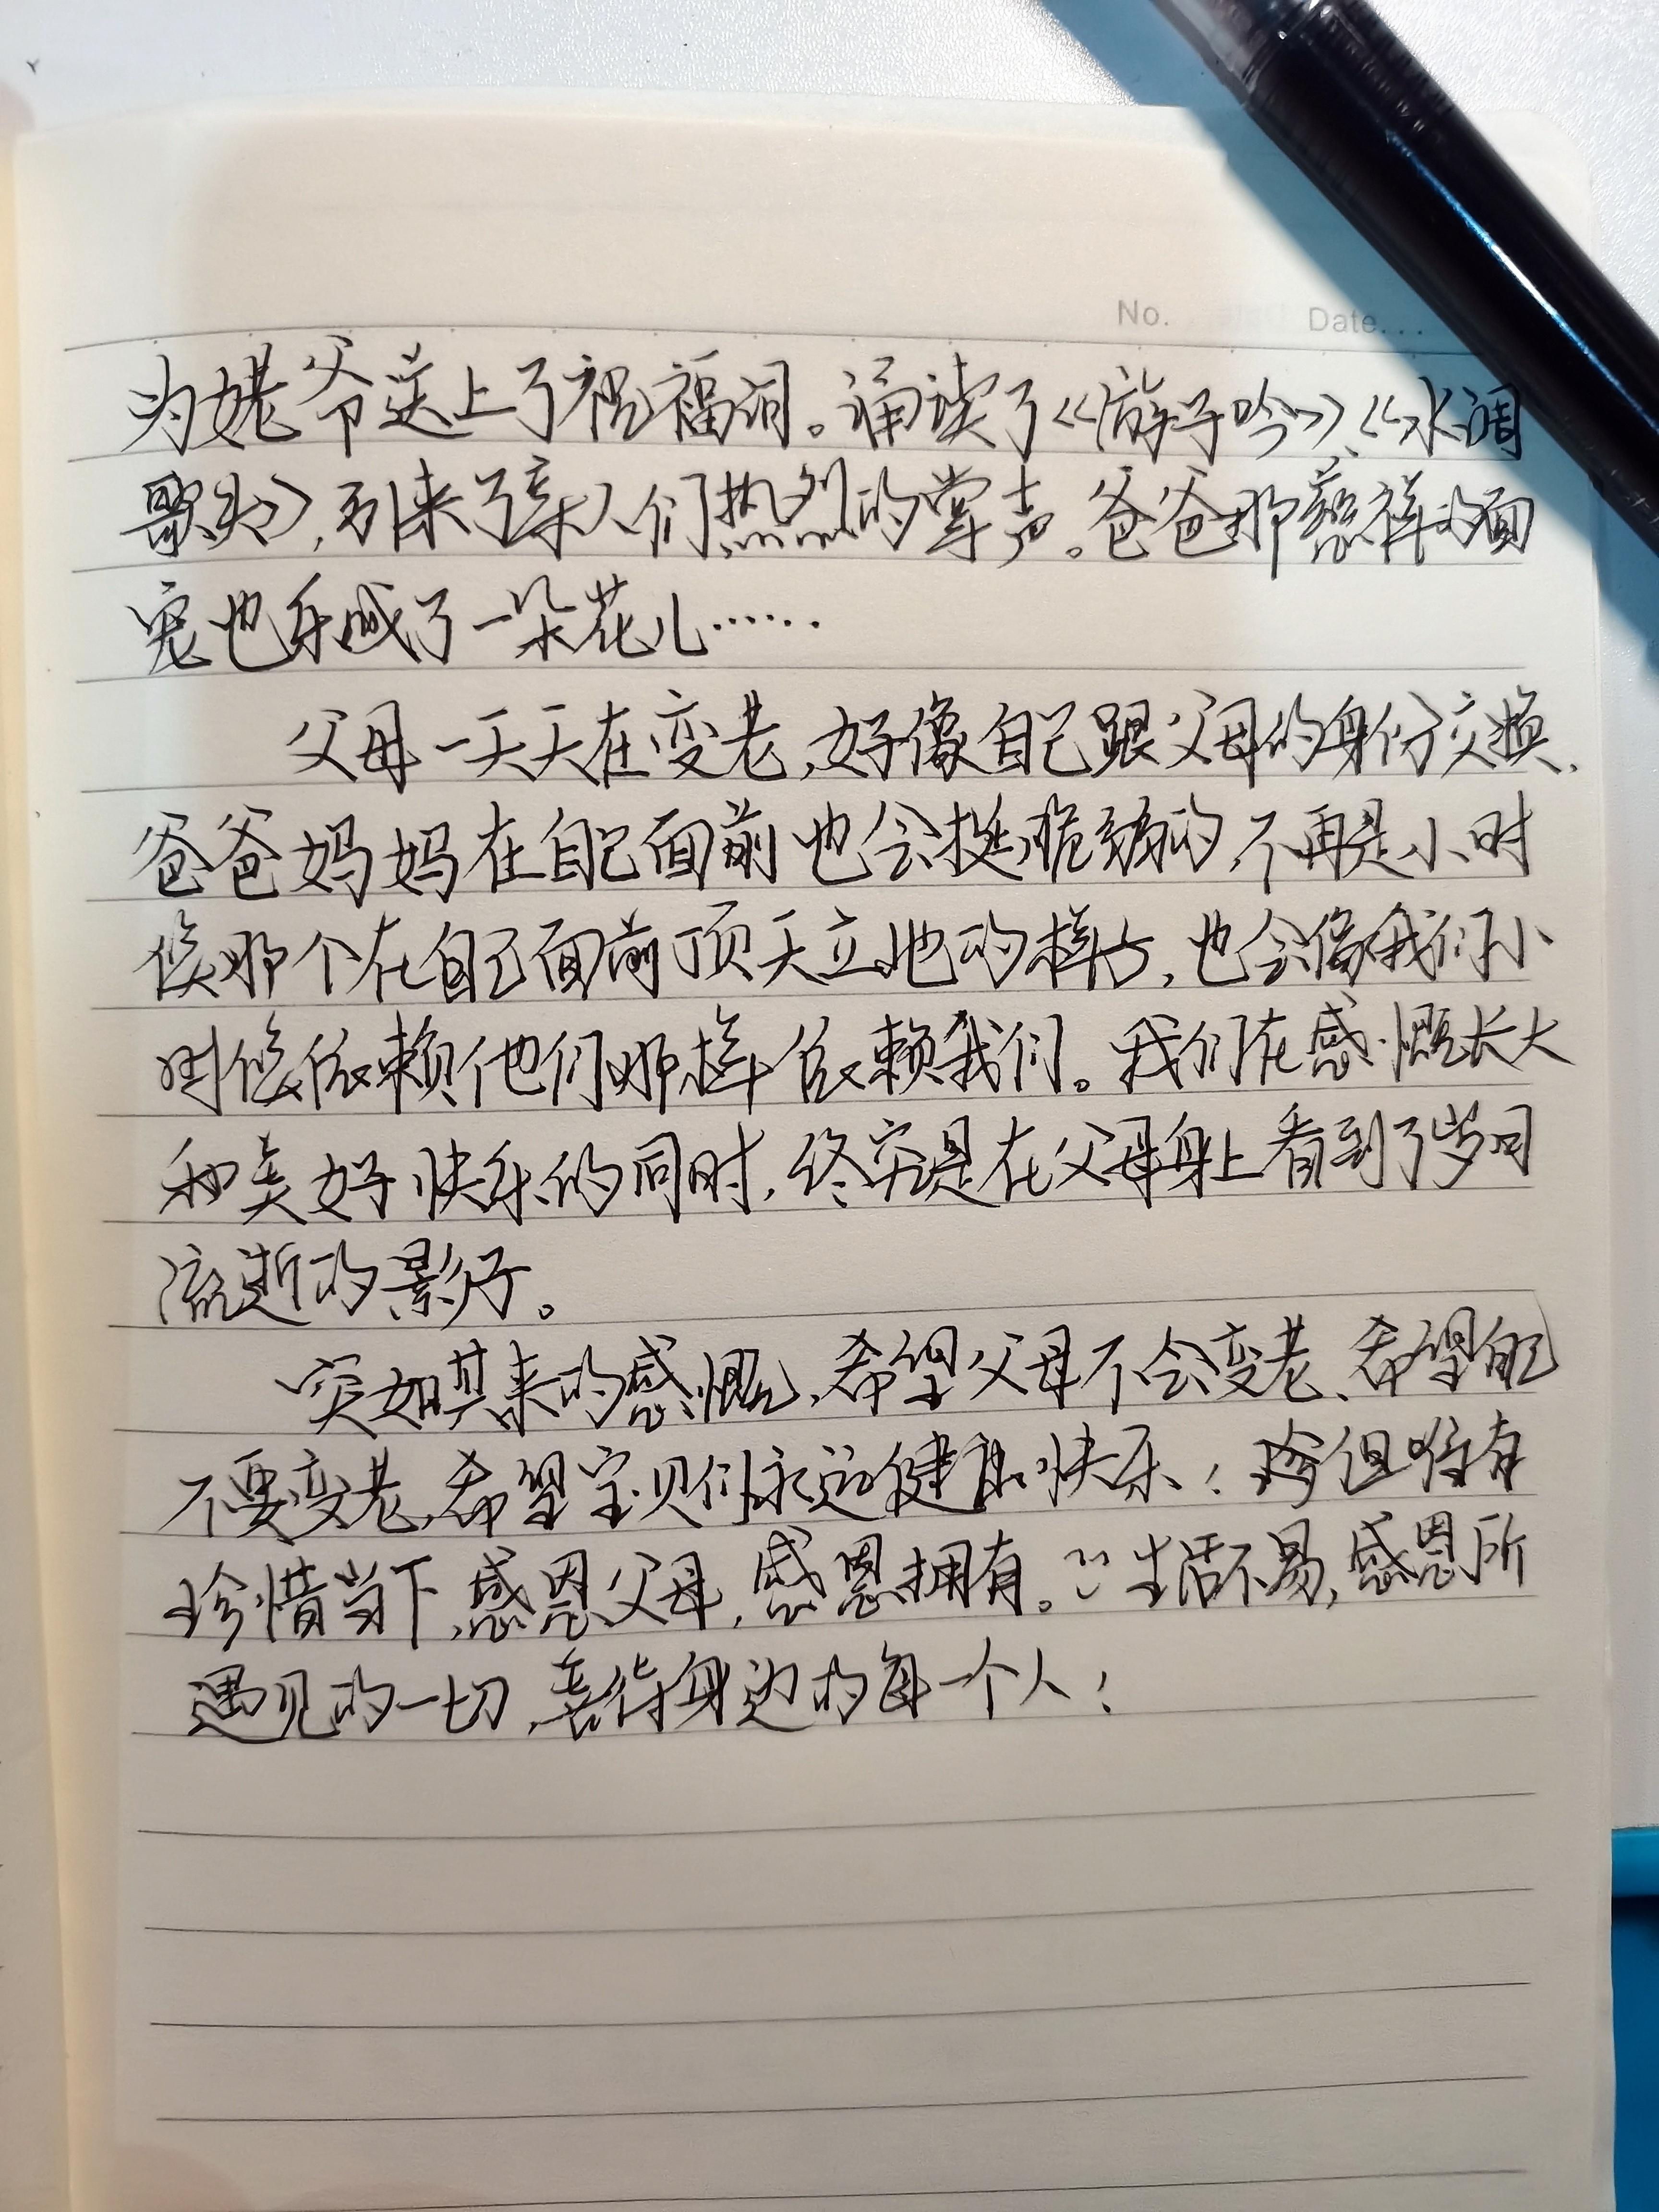 No. Date...
为姥爷送上了祝福词。诵读了《游子吟》、《水调
歌头》,引来了亲人们热烈的掌声。爸爸那慈祥的面
容也乐成了一朵花儿……
父母一天天在变老,好像自己跟父母的身份交换,
爸爸妈妈在自己面前也会挺脆弱的,不再是小时
候那个在自己面前顶天立地的样子,也会像我们小
时候依赖他们那样依赖我们。我们在感慨长大
和美好快乐的同时,终究是在父母身上看到了岁月
流逝的影子。
突如其来的感慨,希望父母不会变老、希望自己
不要变老,希望宝贝们永远健康快乐!珍但唯有
珍惜当下,感恩父母,感恩拥有。生活不易,感恩所
遇见的一切,善待身边的每一个人!